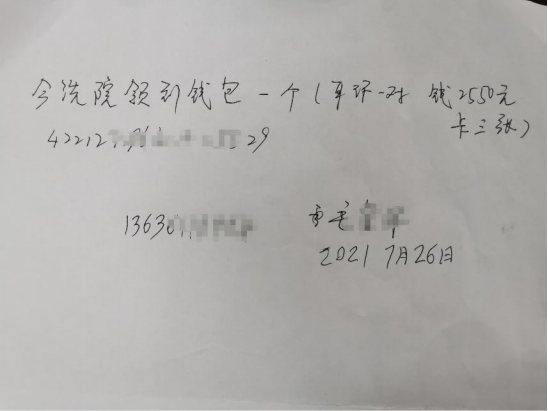 今洗院领到钱包一个(耳环一对 钱2550元
卡三张)
42212 29
1363
2021 7月26日